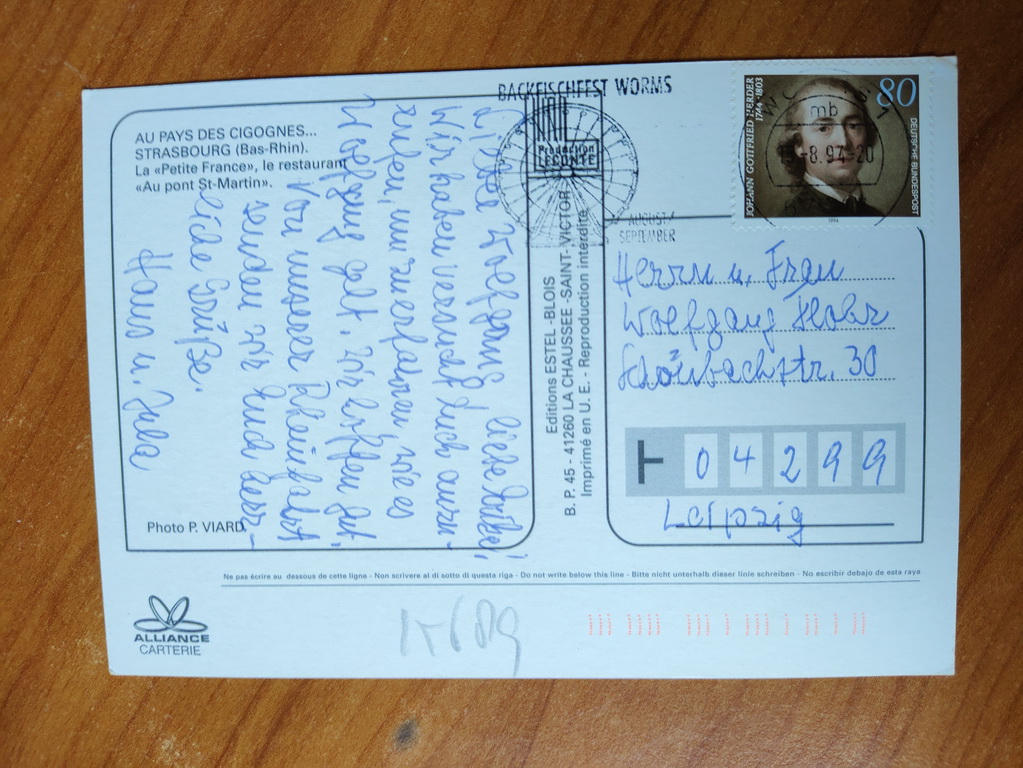 AU PAYS DES CIGOGNES...
STRASBOURG (Bas-Rhin).
La «Petite France», le restaurant
«Au pont St-Martin».
Lieber Wolfgang, liebe
Wir haben versucht Euch anzu-
rufen, um zu erfahren, wie es
Wolfgang geht. Wir hoffen gut.
Von unserer Rheinfahrt
senden wir Euch herz-
liche Grüße.
Hans u.
Photo P. VIARD
Editions ESTEL - BLOIS
B. P. 45 - 41260 LA CHAUSSEE -SAINT- VICTOR
Imprimé en U. E. - Reproduction interdite
BACKFISCHFEST WORMS
Production
LECONTE
AUGUST/
SEPTEMBER
mb
-8.94-20
80
JOHANN GOTTFRIED HERDER
1744-1803
DEUTSCHE BUNDESPOST
1994
Herrn u. Frau
Wolfgang
Schönbachstr. 30
04299
Leipzig
Ne pas écrire au dessous de cette ligne - Non scrivere al di sotto di questa riga - Do not write below this line - Bitte nicht unterhalb dieser linie schreiben - No escribir debajo de esta raya
ALLIANCE
CARTERIE